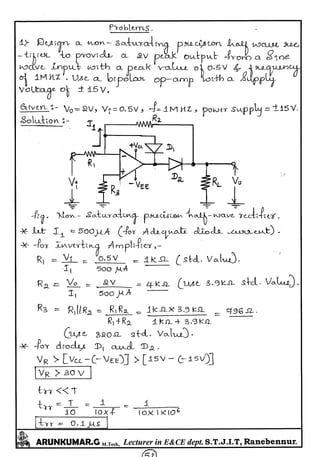 Problems.
1) Design a non-saturating precision half wave rec
-tifier to provide a 2V peak output from a Sine
wave input with a peak value of 0.5V & frequency
of 1MHz. Use a bipolar op-amp with a Supply
voltage of ± 15V.
Given :- V₀=2V, Vᵢ=0.5V, f=1MHz, power supply=±15V.
Solution :-
R₂
I₁
+Vcc
D₁
R₁
D₂
Vᵢ
R₃
-VEE
RL
V₀
fig. Non-Saturating precision half-wave rectifier.
* let I₁ = 500μA (for Adequate diode current).
* for inverting Amplifier,-
R₁ = Vᵢ/I₁ = 0.5V/500 μA = 1KΩ (std. Value).
R₂ = V₀/I₁ = 2V/500 μA = 4KΩ (use 3.9KΩ std. Value).
R₃ = R₁||R₂ = R₁R₂/R₁+R₂ = 1KΩ X 3.9KΩ/1KΩ + 3.9KΩ = 796Ω.
(use 820Ω std. Value).
* for diodes D₁ and D₂.
VR > [Vcc-(-VEE)] > [15V-(-15V)]
VR > 30V
trr << T
trr = T/10 = 1/10xf = 1/10X1X10⁶
trr = 0.1μs
ARUNKUMAR.G M.Tech, Lecturer in E&CE dept. S.T.J.I.T, Ranebennur.